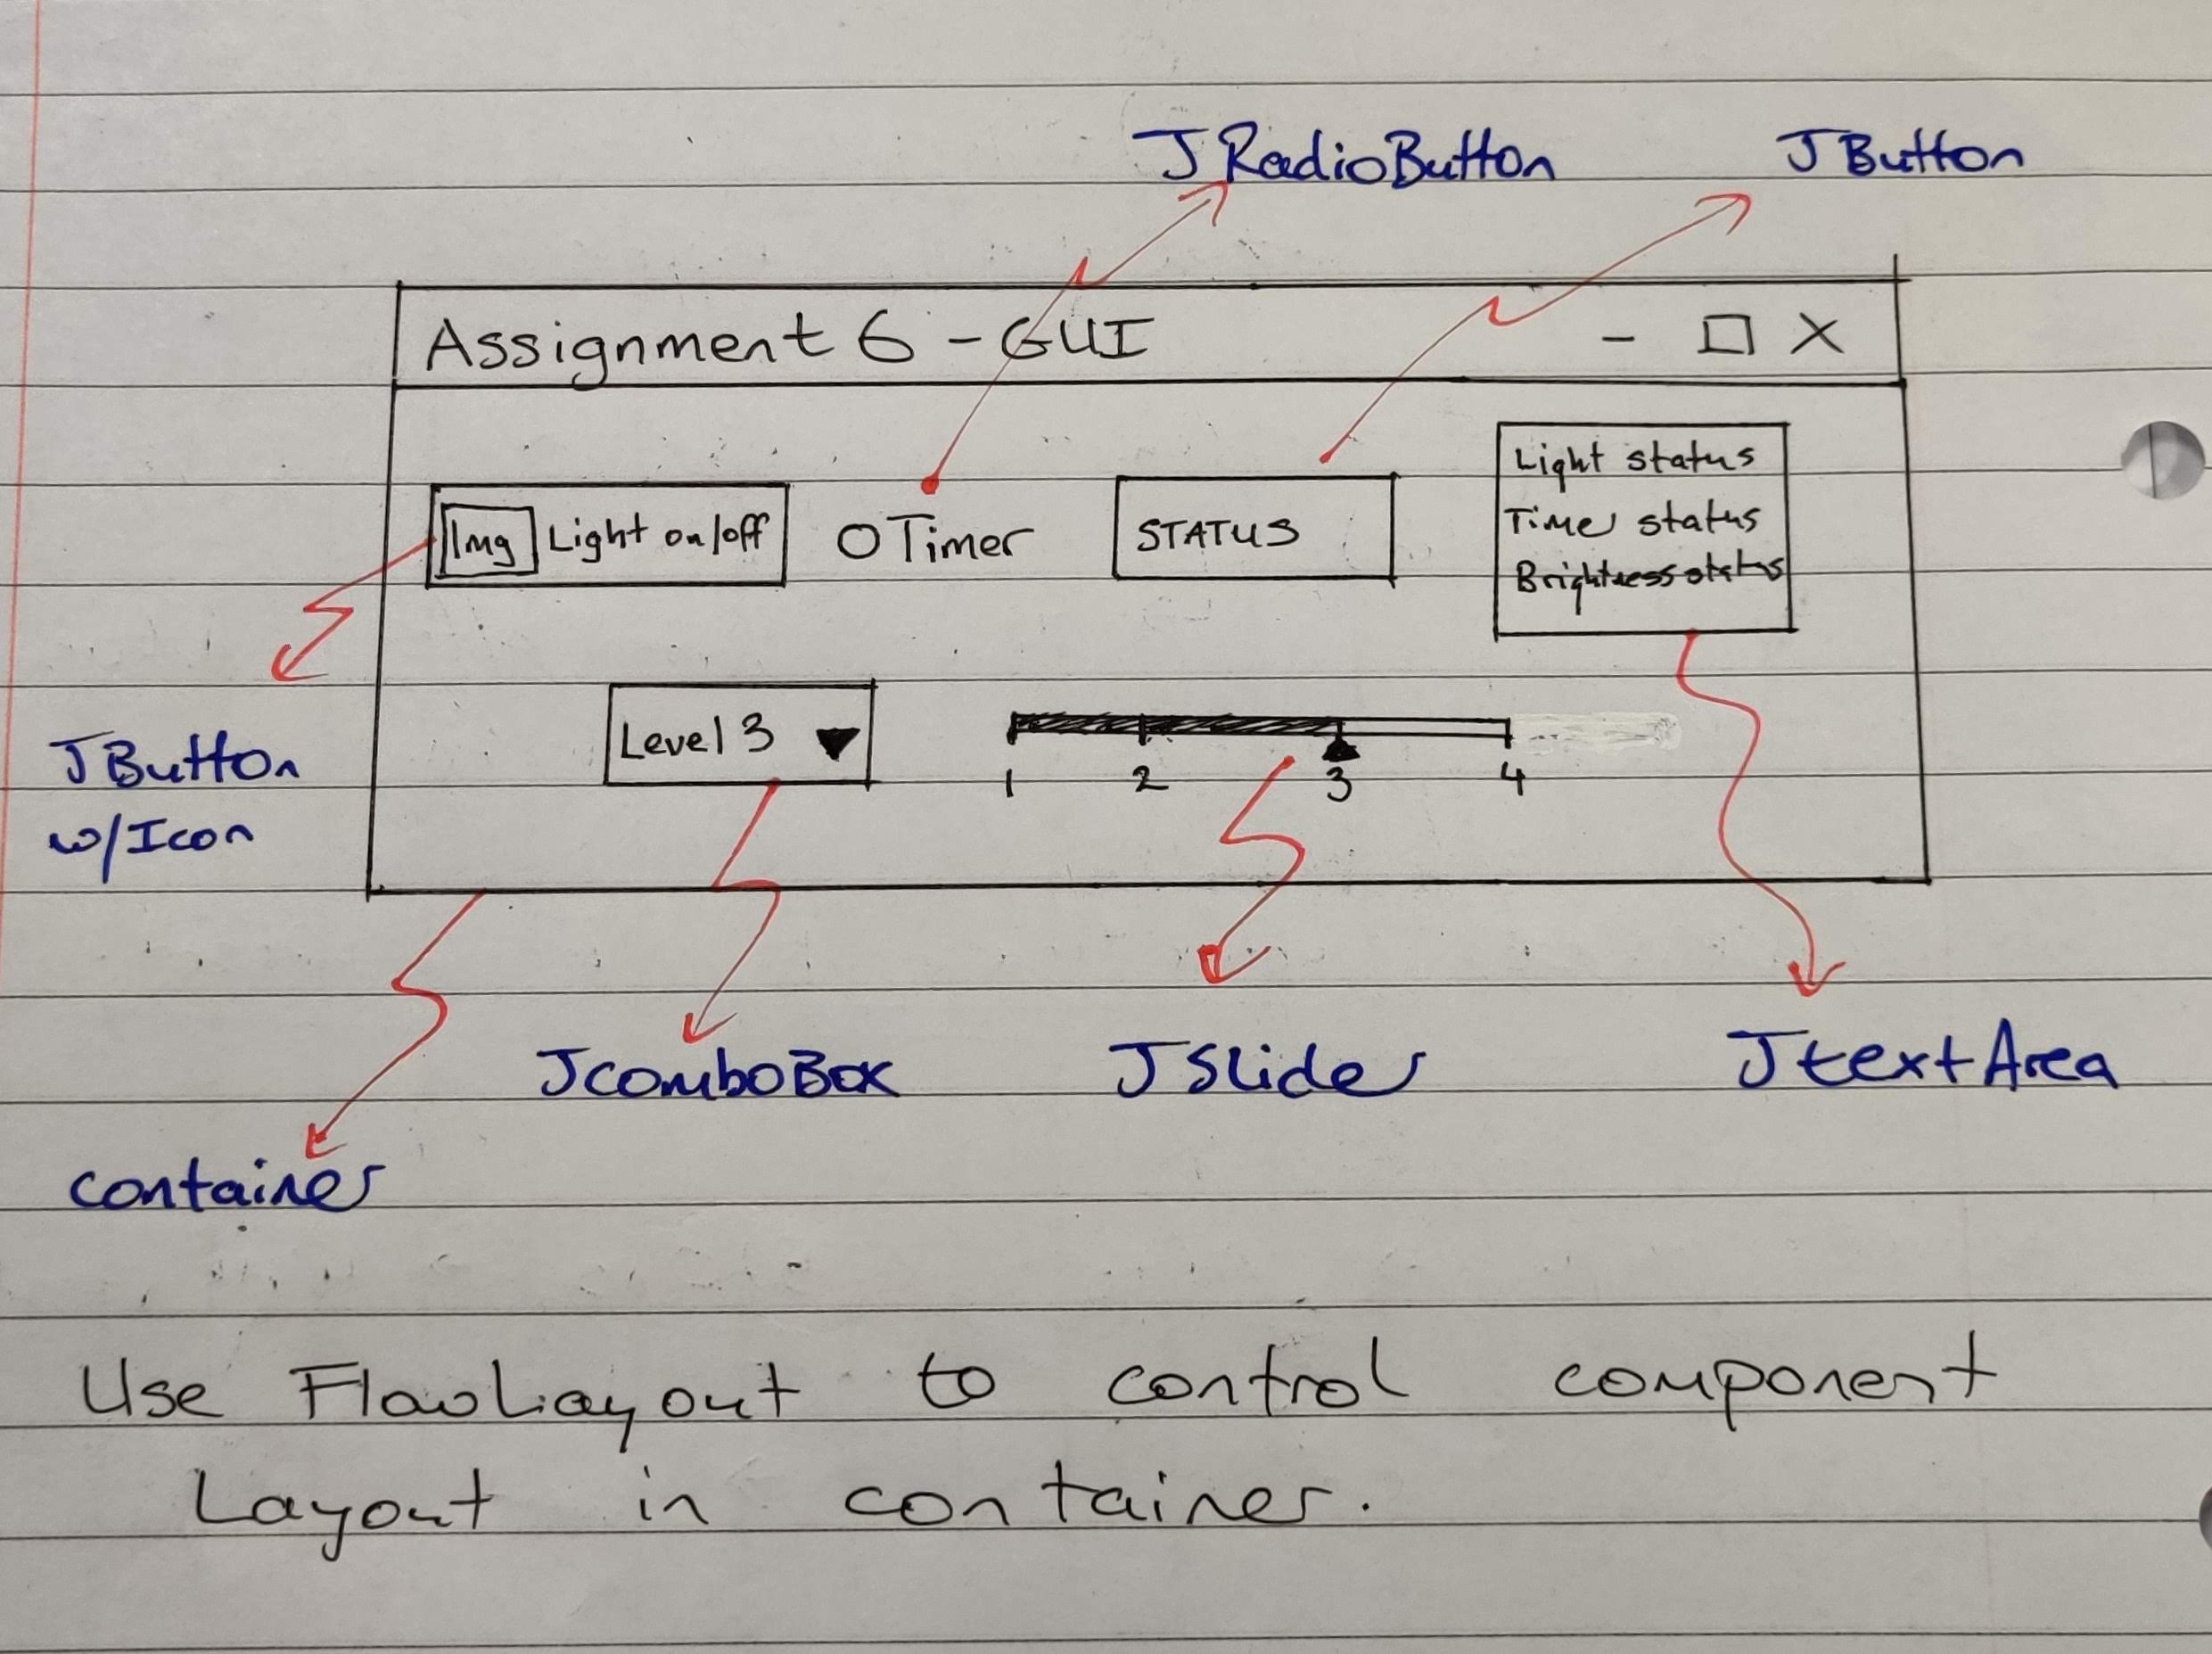 JRadioButton
JButton
Assignment 6 - GUI - □ X
Img Light on/off
O Timer
STATUS
Light status
Timer status
Brightness status
Level 3 ▼
1 2 3 4
JButton
w/Icon
JcomboBox
JSlider
JtextArea
container
Use FlowLayout to control component
Layout in container.